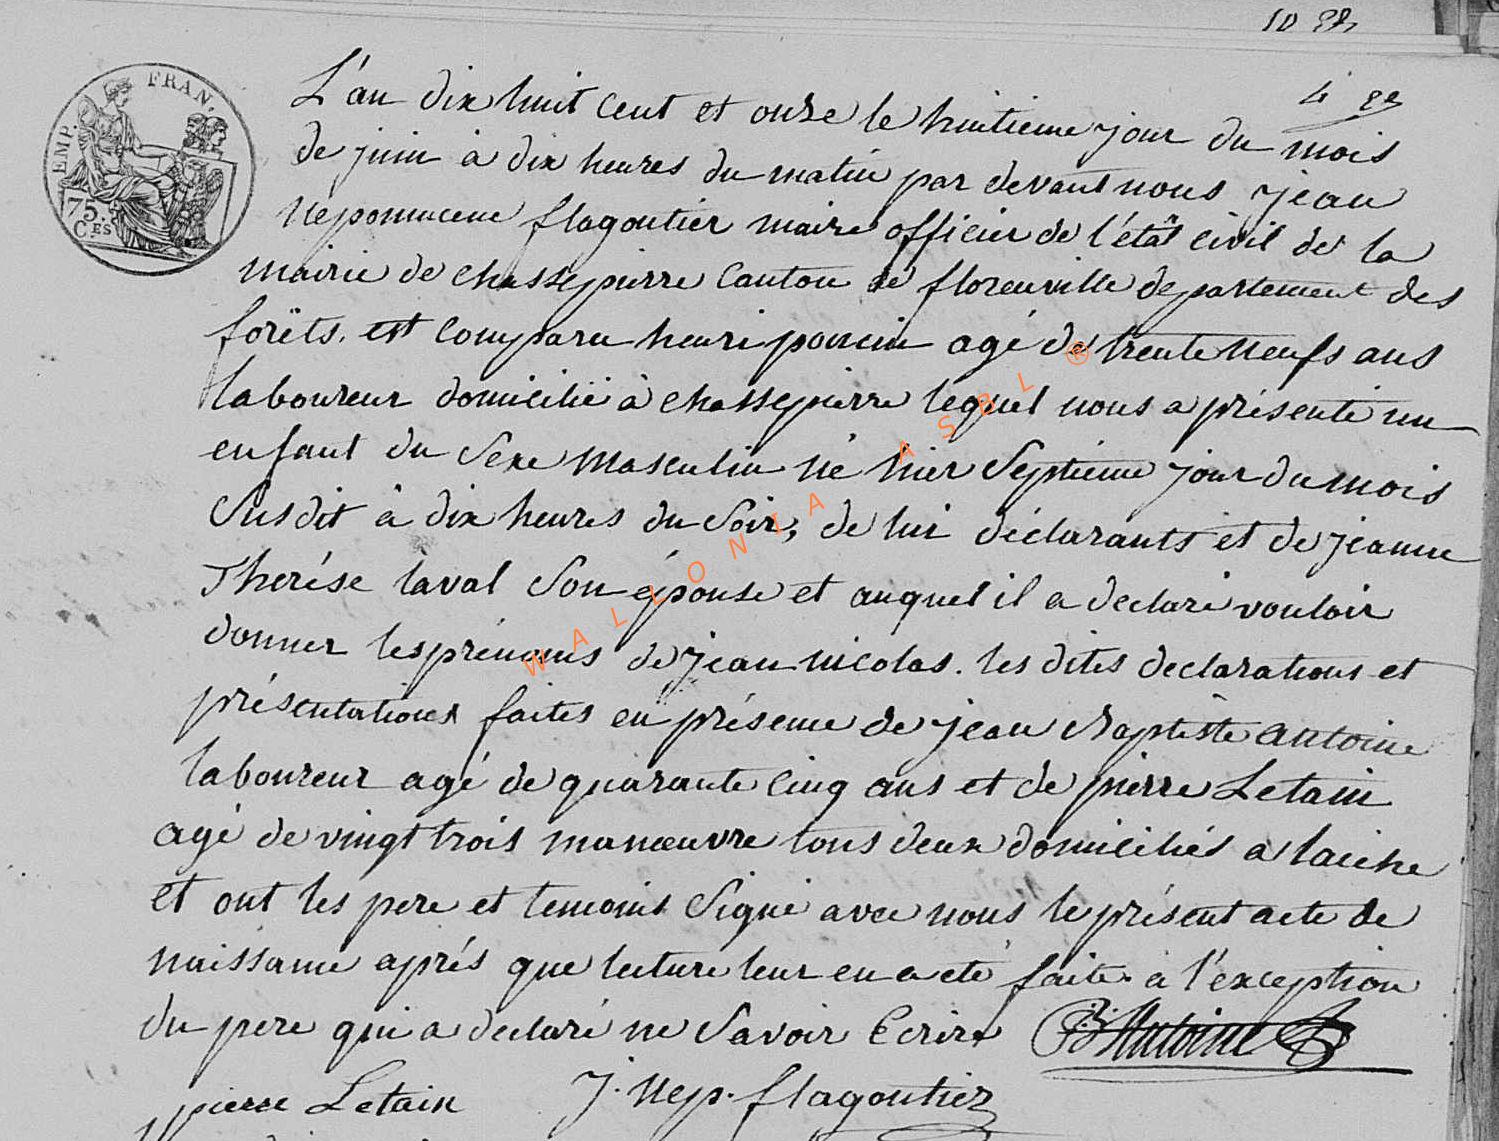 EMP. FRAN.
75.
C.ES
L'an dix huit cent et onze le huitieme jour du mois
de juin à dix heures du matin par devant nous jean
Nepomucene flagoutier maire officier de l'état civil de la
mairie de chassepierre Canton de florenville departement des
forêts. est Comparu henri poncin agé de trente neufs ans
laboureur domicilié à chassepierre lequel nous a présenté un
enfant du sexe masculin né hier septieme jour du mois
susdit à dix heures du soir, de lui déclarants et de jeanne
Therése laval son épouse et auquel il a declaré vouloir
donner les prénoms de jean nicolas. les dites declarations et
présentations faites en présence de jean Baptiste antoine
laboureur agé de quarante cinq ans et de pierre Letain
agé de vingt trois manœuvre tous deux domiciliés a laiche
et ont les pere et temoins signé avec nous le présent acte de
naissance aprés que lecture leur en a eté faite à l'exception
du pere qui a declaré ne savoir Ecrire
JB Antoine
pierre Letain J. Nep. flagoutier
WALLONIA ASBL ®